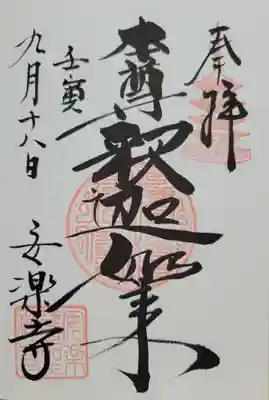 奉拝
本尊釈迦如来
壬寅
九月十八日
安楽寺